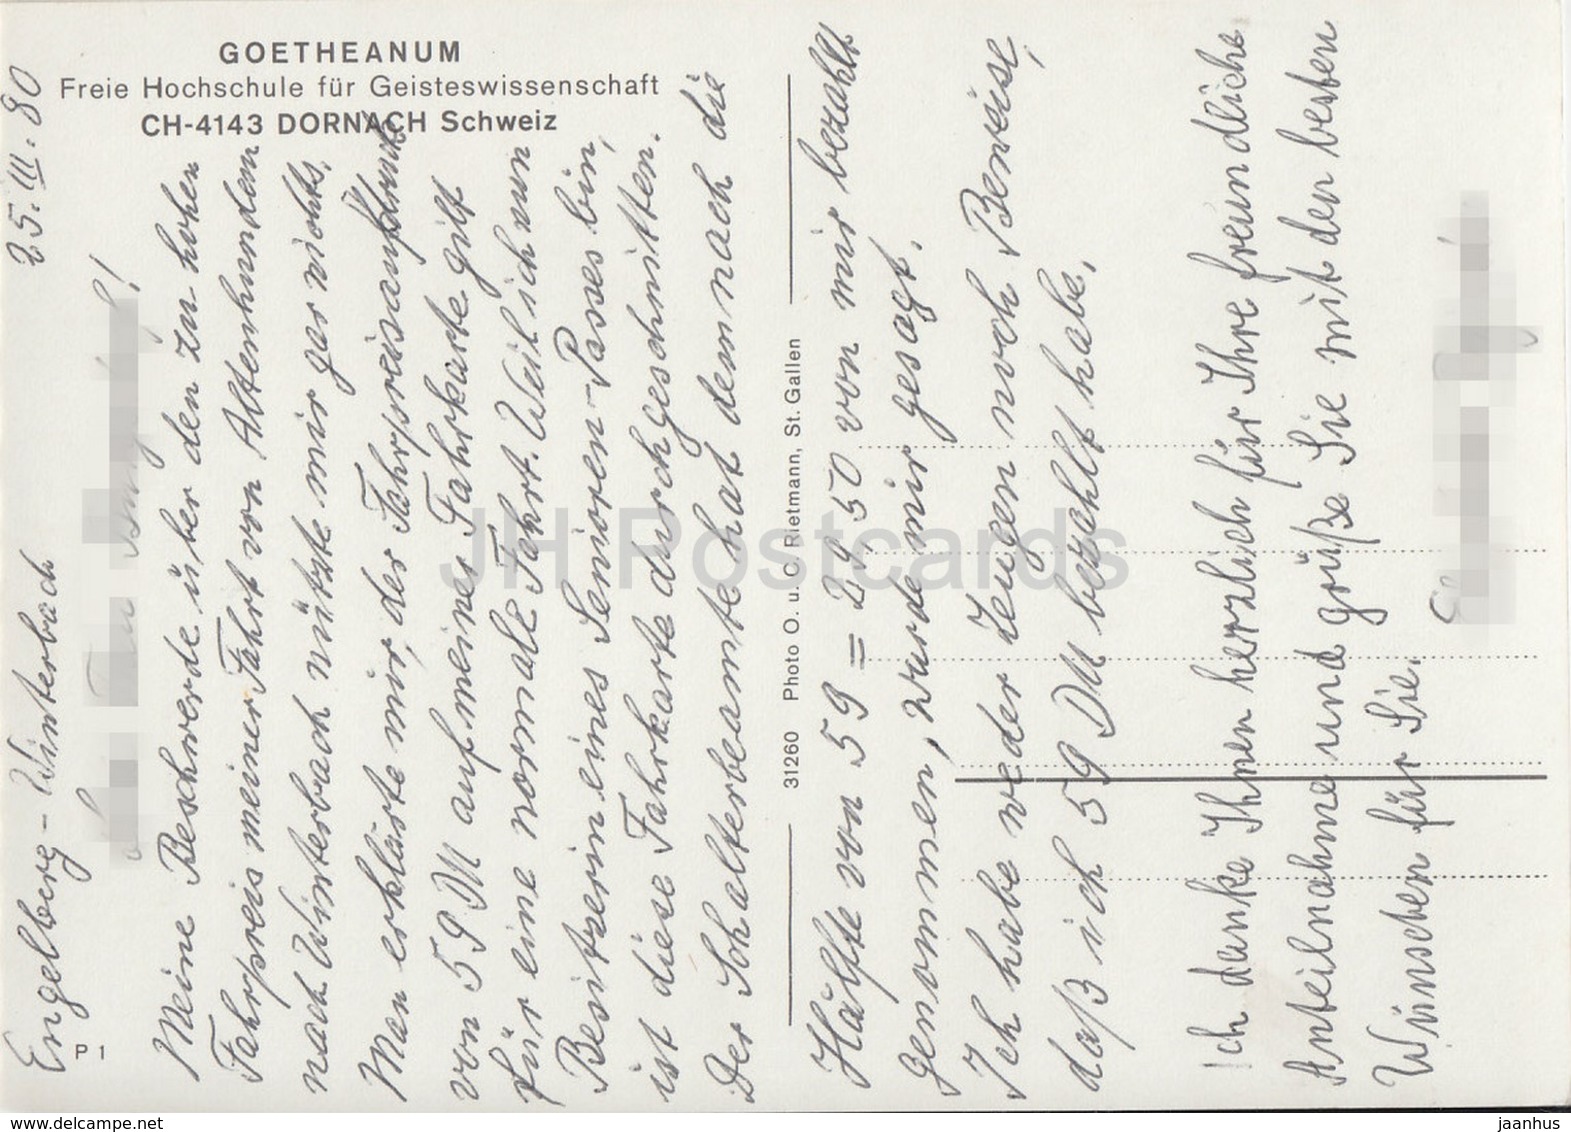 GOETHEANUM
Freie Hochschule für Geisteswissenschaft
CH-4143 DORNACH Schweiz
P 1
31260 Photo O. u. C. Rietmann, St. Gallen
Engelberg - Winterbach 25. III. 80
Meine Beschwerde über den zu hohen
Fahrpreis meiner Fahrt von Altenhundem
nach Winterbach nützte mir gar nichts.
Man erklärte mir, der Fahrpreisaufdruck
von 59 DM auf meiner Fahrkarte gilt
für eine normale Fahrt. Weil ich nun
Besitzerin eines Senioren-Passes bin,
ist diese Fahrkarte durchgeschnitten.
Der Schalterbeamte hat demnach die
Hälfte von 59 = 29,50 von mir bezahlt
genommen, wurde mir gesagt.
Ich habe weder Zeugen noch Beweise,
daß ich 59 DM bezahlt habe.
Ich danke Ihnen herzlich für Ihre freundliche
Anteilnahme und grüße Sie mit den besten
Wünschen für Sie.
JH Postcards
www.delcampe.net
jaanhus